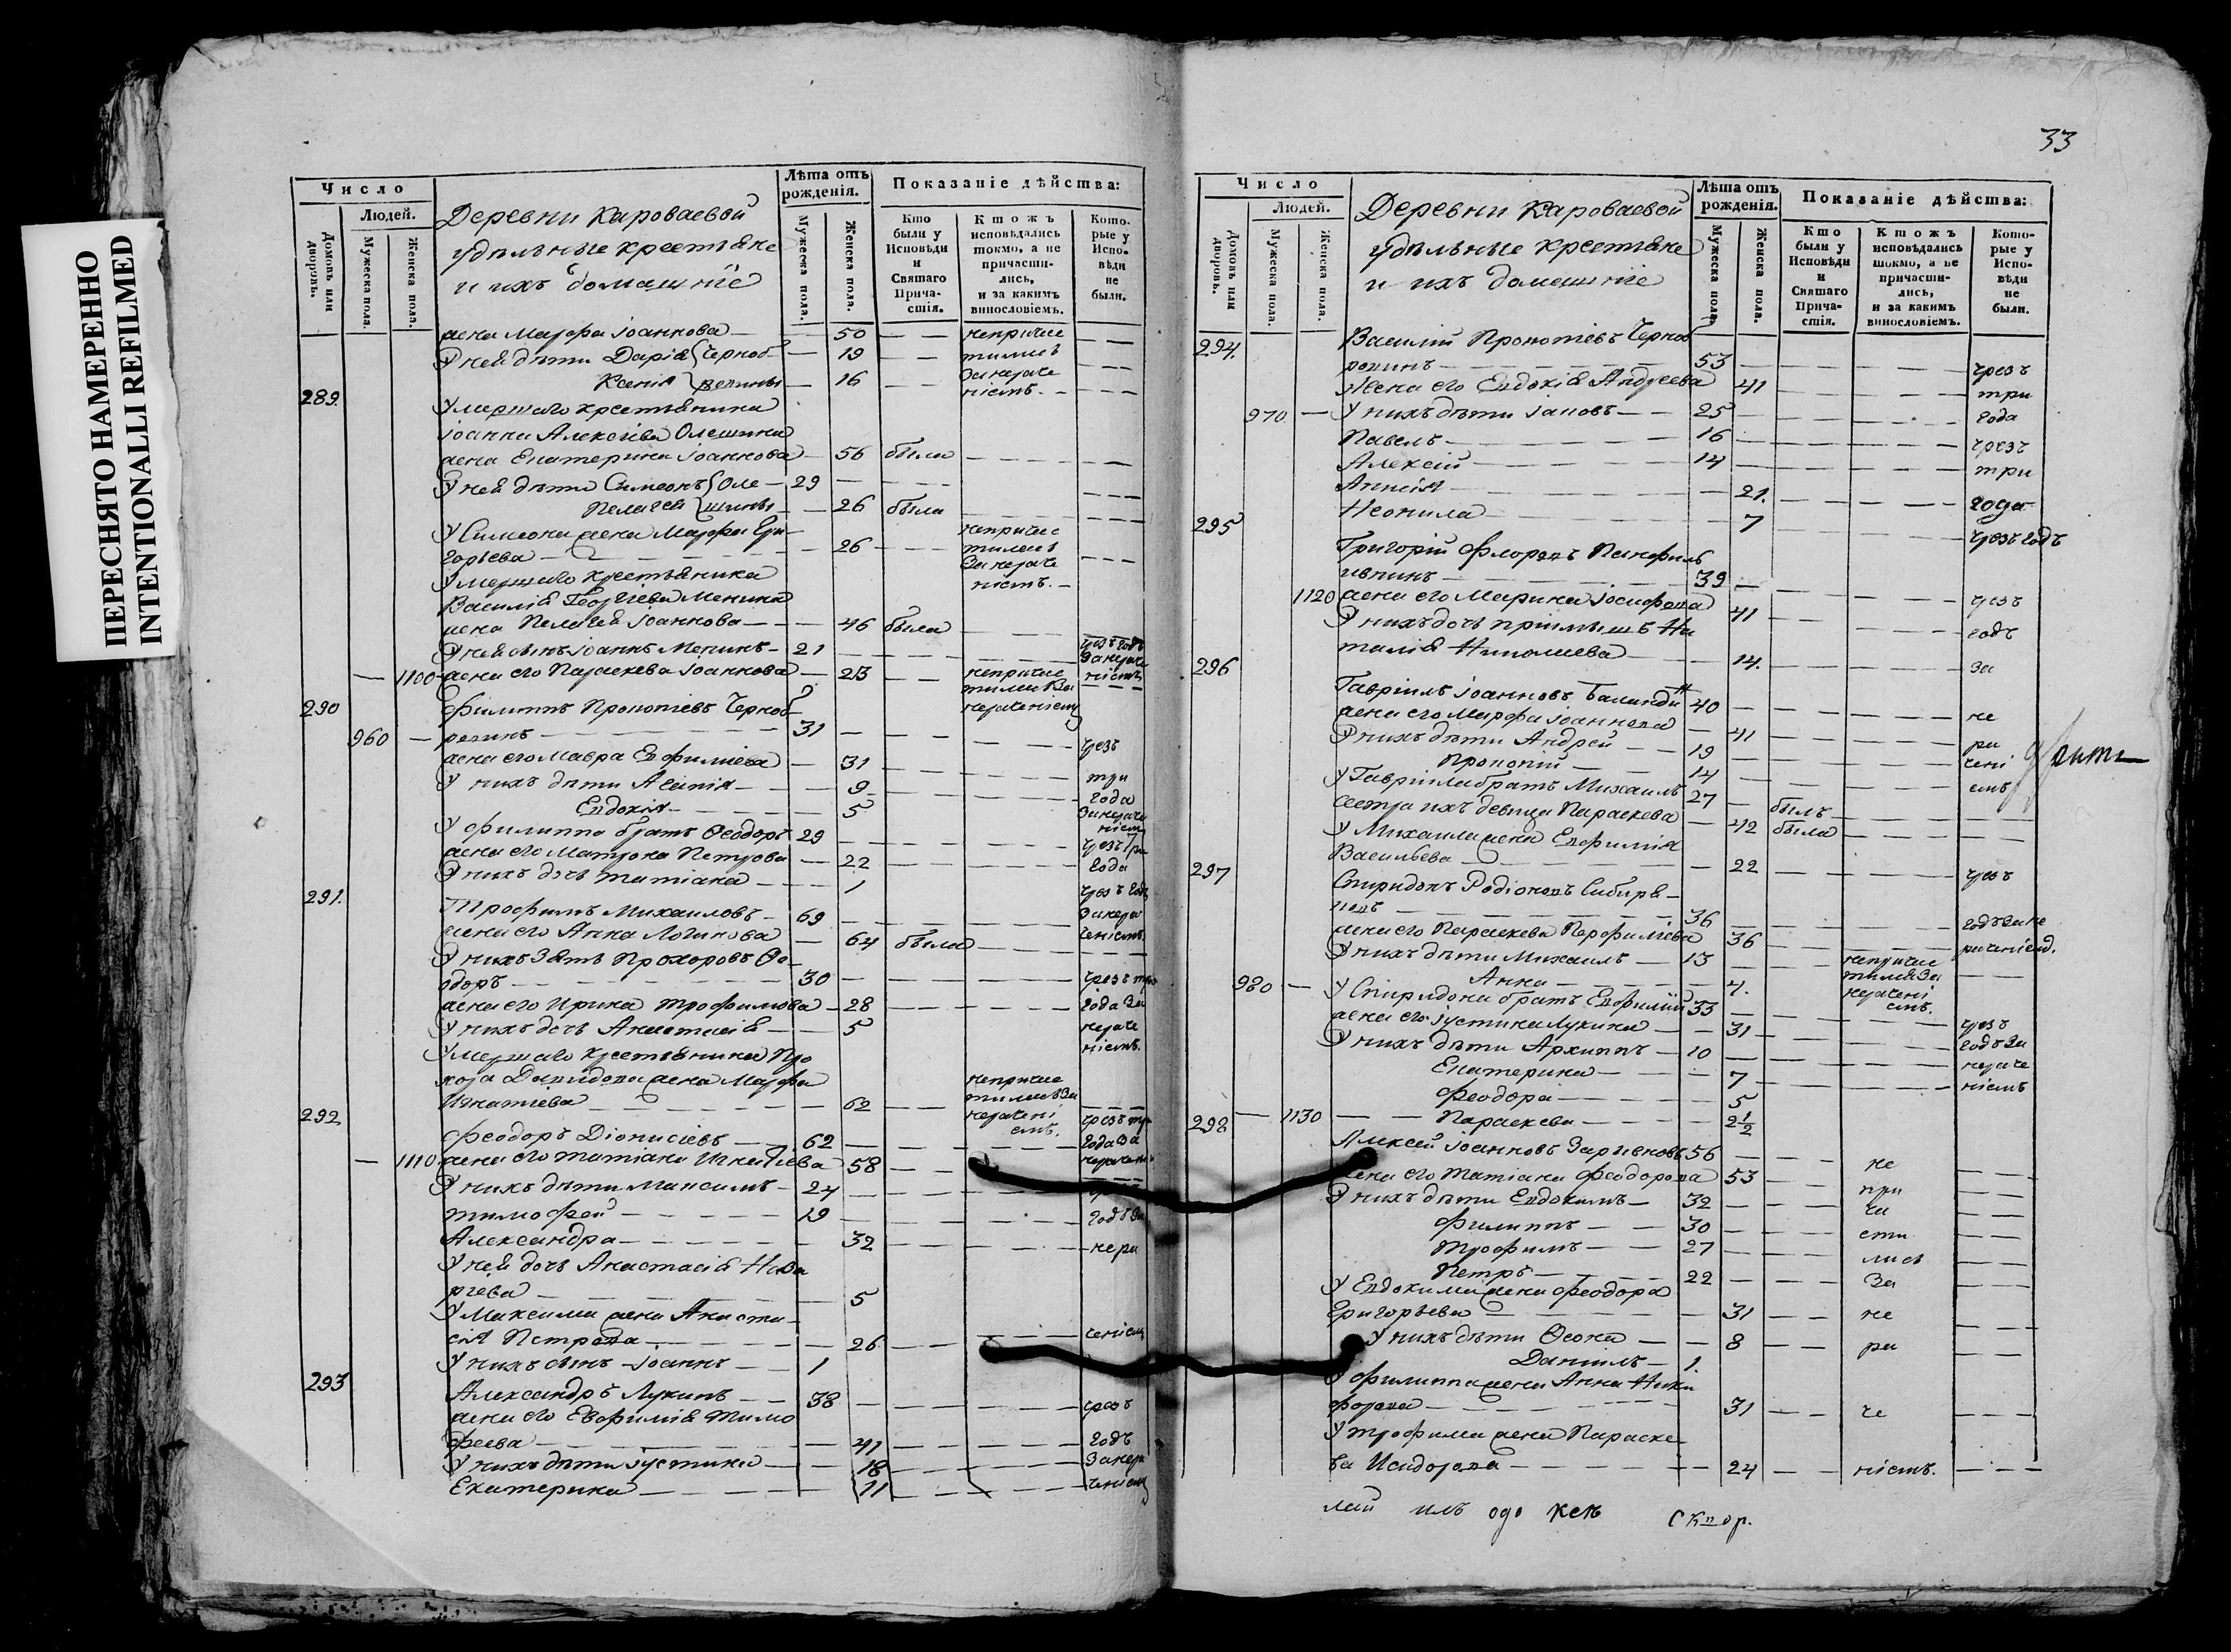 ПЕРЕСНЯТО НАМЕРЕННО
INTENTIONALLI REFILMED
Число
Людей.
Домовъ или дворовъ.
Мужеска пола.
Женска пола.
Деревни Кароваевой
удѣльные крестьяне
и ихъ домашніе
Лѣта отъ рожденія.
Мужеска пола.
Женска пола.
Показаніе дѣйства:
Кто были у Исповѣди и Святаго Причастія.
Ктожъ исповѣдались токмо, а не причастились, и за какимъ винословіемъ.
Которые у Исповѣди не были.
жена Марфа Іоаннова — 50 — —
У ней дѣти Дарія Черноб — 19 — —
Ксенія — 16 — —
289.
Умершаго крестьянина
Іоанна Алексіева Олешина
жена Екатерина Іоаннова — 56 была — —
У ней дѣти Симеонъ Оле — 29 — —
Пелагея шины — 26 была — —
У Симеона жена Марфа Гри
горьева — 26 — —
Умершаго крестьянина
Василія Георгіева Менина
жена Пелагея Іоаннова — 46 была — —
У ней сынъ Іоаннъ Менинъ — 21 — — чрезъ годъ
1100 жена его Параскева Іоаннова — 23 — —
290 Филиппъ Прокопіевъ Черноб
960 — 31 — — чрезъ
жена его Мавра Евфиміева — 31 — — три
У нихъ дѣти Агапія — 9 — — года
Евдокія — 5
У Филиппа братъ Ѳеодоръ 29 — —
жена его Матрона Петрова — 22 — — года
У нихъ дочь Татіана — 1
291. Трофимъ Михаиловъ — 69 — —
жена его Анна Логинова — 64 была — —
У нихъ зять Прохоровъ Ѳе
одоръ — 30 — — чрезъ три
жена его Ирина Трофимова — 28 — — года за
У нихъ дочь Анастасія — 5 нераче
ніемъ.
Умершаго крестьянина Про
хора Давидова жена Марфа
Игнатіева — 62 — —
292 Феодоръ Діонисіевъ — 62 — — года за
1110 жена его Татіана Игнатіева 58 — —
У нихъ дѣти Максимъ — 24 — —
Тимофей — 19 — — годъ за
Александра — 32 — — нера
У ней дочь Анастасія Наза
ріева — 5
У Максима жена Анаста
сія Петрова — 26 — — ченіемъ
У нихъ сынъ Іоаннъ — 1
293 Александръ Лукинъ — 38 — — чрезъ
жена его Евфимія Тимо
феева — 41 — — годъ
У нихъ дѣти Іустина — 18 — — за нера
Екатерина — 11 — — ченіемъ
33
Число
Людей.
Домовъ или дворовъ.
Мужеска пола.
Женска пола.
Деревни Кароваевой
удѣльные крестьяне
и ихъ домашніе
Лѣта отъ рожденія.
Мужеска пола.
Женска пола.
Показаніе дѣйства:
Кто были у Исповѣди и Святаго Причастія.
Ктожъ исповѣдались токмо, а не причастились, и за какимъ винословіемъ.
Которые у Исповѣди не были.
294. Василій Прокопіевъ Черноб
53 — — чрезъ
Жена его Евдокія Андреева 41 — — три
970 — У нихъ дѣти 25 — — года
Павелъ — 16 — — чрезъ
Алексій — 14 — — три
Аннсія — 21. — — года
Неонила — 7 — — чрезъ годъ
295 Григорій Флоровъ Панфиль
39 — — чрезъ
1120 жена его Марина Іосифова 41 — — годъ
У нихъ дочь пріимышъ На
талія Николаева — 14. — — за
296 Гавріилъ Іоанновъ Баландинъ 40 — — не
жена его Марфа Іоаннова — 41 — — ра
У нихъ дѣти Андрей — 19 — — чені
Прокопій — 14 — — емъ
У Гавріила братъ Михаилъ 27 — былъ — —
сестра ихъ девица Параскева — 42 была — —
У Михаила жена Евфимія
Васильева — 22 — — чрезъ
297 Спиридонъ Родіоновъ Сибиря
36 — — годъ за не
жена его Параскева Перфиліева 36 — — раченіемъ.
У нихъ дѣти Михаилъ — 13 — —
980 — Анна — 7.
У Спиридона братъ Евфимій 33 — — чрезъ
жена его Іустина Лукина — 31 — — годъ за
У нихъ дѣти Архиппъ — 10 — — нераче
Екатерина — 7 — — ніемъ
Феодора — 5
298 — 1130 — Параскева — 2½
Алексей Іоанновъ 56 — — не
жена его Татіана Феодорова 53 — — при
У нихъ дѣти Евдокимъ — 32 — — ча
Филиппъ — 30 — — сти
Трофимъ — 27 — — лись
Петръ — 22 — — за
У Евдокима жена Феодора
Григорьева — 31 — — не
У нихъ дѣти Ѳеона — 8 — — ра
Даніилъ — 1.
У Филиппа жена Анна Ники
форова — 31 — — че
У Трофима жена Параске
ва Исидорова — 24 — — ніемъ.